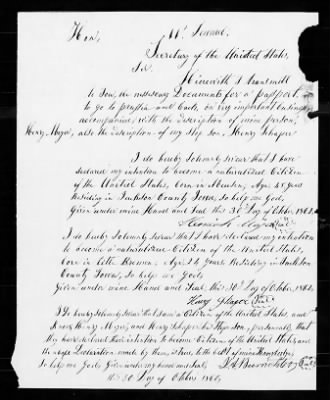 Hon. Mr. Seward.
Secretary of the United States,
Sir,
Herewith I transmitt
to You, the nessesary Documents for a passport,
to go to prussia and back, on very important business
accompanied, with the description of mine person,
Henry Meyer, also the description of my Step son, Henry Schaper
I do hereby Solemnly swear that I have
declared my intention to become a naturalized Citizen
of the United States, born in Age, 45 years
Residing in Jackson County Iowa, So help me God,
Given under mine Hand and Seal this 30 Day of October 1862
Seal
I do hereby Solemnly swear that I have declared my intention
to become a naturalized Citizen of the United States,
born in Bremen, Age, 24 years Residing in Jackson
County Iowa, So help me God,
Given under mine Hand and Seal, this 30 Day of October 1862,
Henry Schaper Seal
I Do hereby Solemnly swear that I am a Citizen of the United States, and
know Henry Meyer, and Henry Schaper his Step Son, personally, that
they have declared their intention to become Citizen of the United States and
the above Declaration made by them is true, to the best of mine Knowledge,
So help me God, Given under my hand and Seal,
this 30 Day of October 1862,